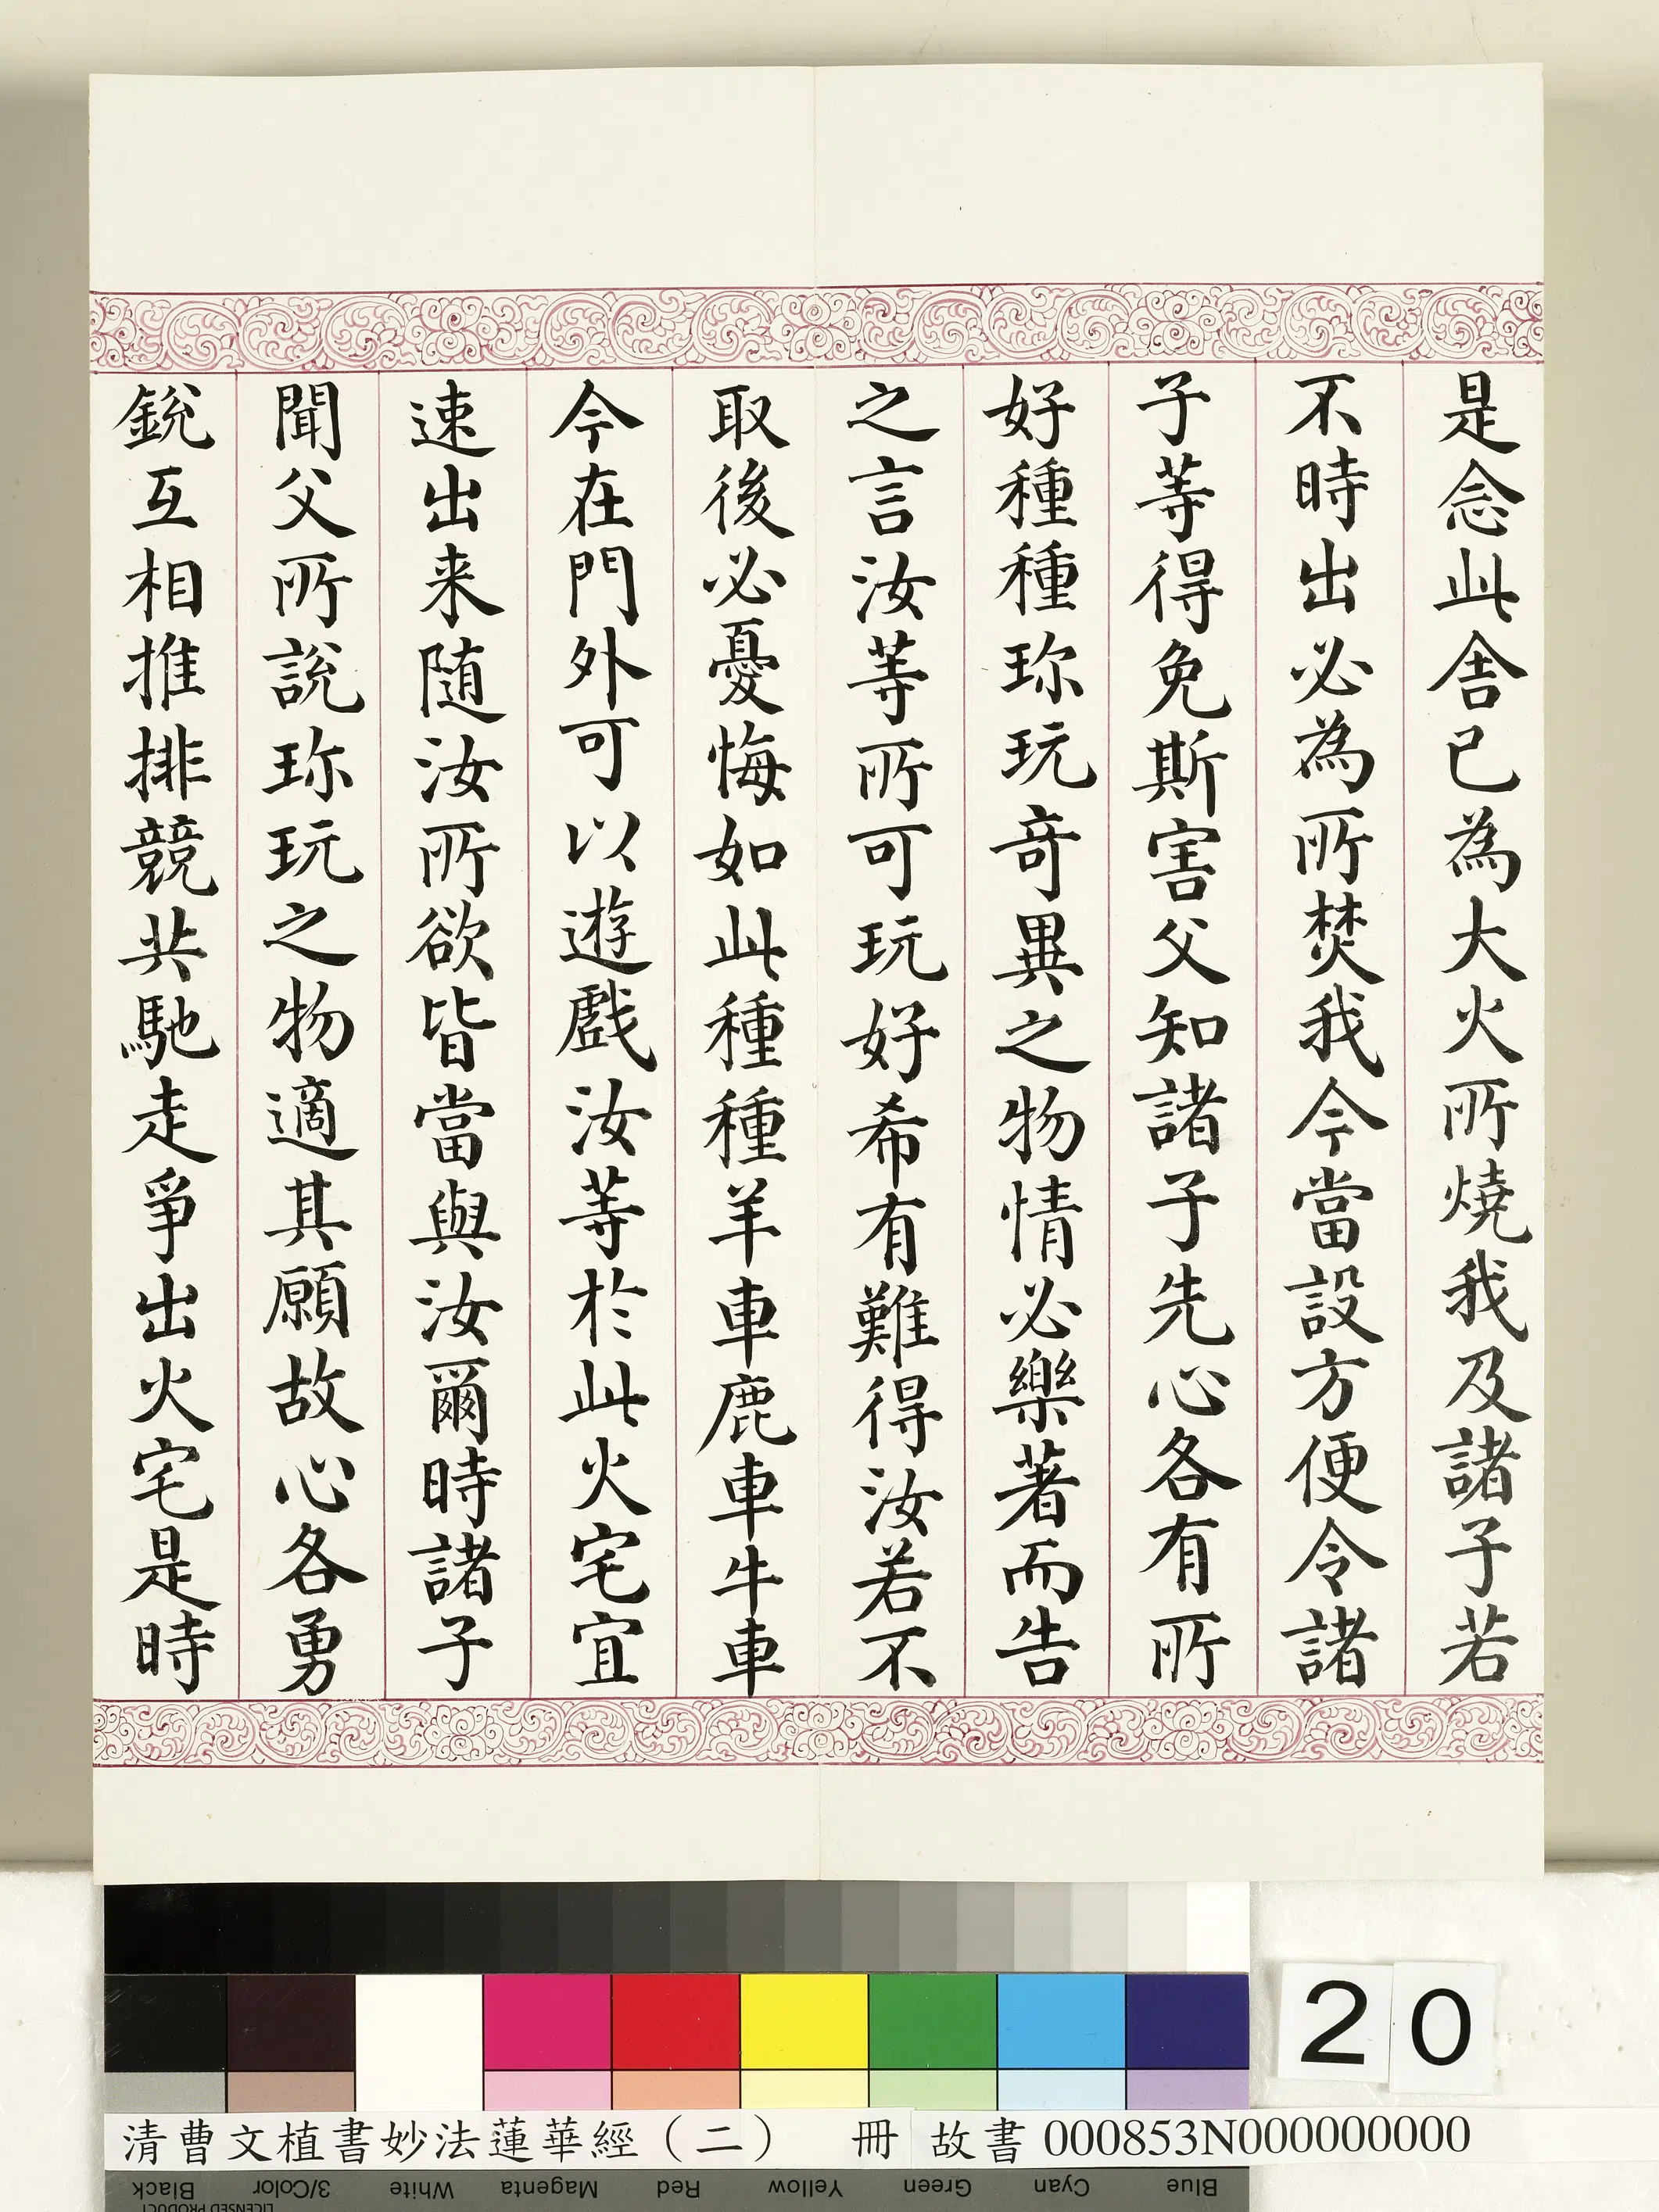 是念此舍已為大火所燒我及諸子若
不時出必為所焚我今當設方便令諸
子等得免斯害父知諸子先心各有所
好種種珎玩奇異之物情必樂著而告
之言汝等所可玩好希有難得汝若不
取後必憂悔如此種種羊車鹿車牛車
今在門外可以遊戲汝等於此火宅宜
速出来随汝所欲皆當與汝爾時諸子
聞父所說珎玩之物適其願故心各勇
銳互相推排競共馳走爭出火宅是時
20
清曹文植書妙法蓮華經（二） 冊 故書000853N000000000
Black 3/Color White Magenta Red Yellow Green Cyan Blue
LICENSED PRODUCT